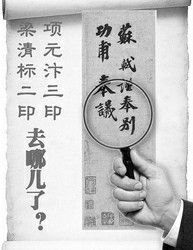 蘇軾謹奉别
功甫奉議
项元汴三印
梁清标二印
去哪儿了？